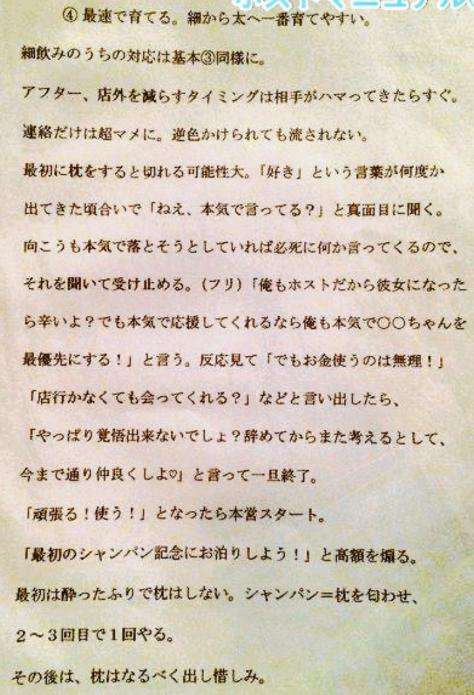 ④ 最速で育てる。細から太へ一番育てやすい。
細飲みのうちの対応は基本③同様に。
アフター、店外を減らすタイミングは相手がハマってきたらすぐ。
連絡だけは超マメに。逆色かけられても流されない。
最初に枕をすると切れる可能性大。「好き」という言葉が何度か
出てきた頃合いで「ねえ、本気で言ってる？」と真面目に聞く。
向こうも本気で落とそうとしていれば必死に何か言ってくるので、
それを聞いて受け止める。（フリ）「俺もホストだから彼女になった
ら辛いよ？でも本気で応援してくれるなら俺も本気で○○ちゃんを
最優先にする！」と言う。反応見て「でもお金使うのは無理！」
「店行かなくても会ってくれる？」などと言い出したら、
「やっぱり覚悟出来ないでしょ？辞めてからまた考えるとして、
今まで通り仲良くしよ♡」と言って一旦終了。
「頑張る！使う！」となったら本営スタート。
「最初のシャンパン記念にお泊りしよう！」と高額を煽る。
最初は酔ったふりで枕はしない。シャンパン＝枕を匂わせ、
２～３回目で１回やる。
その後は、枕はなるべく出し惜しみ。